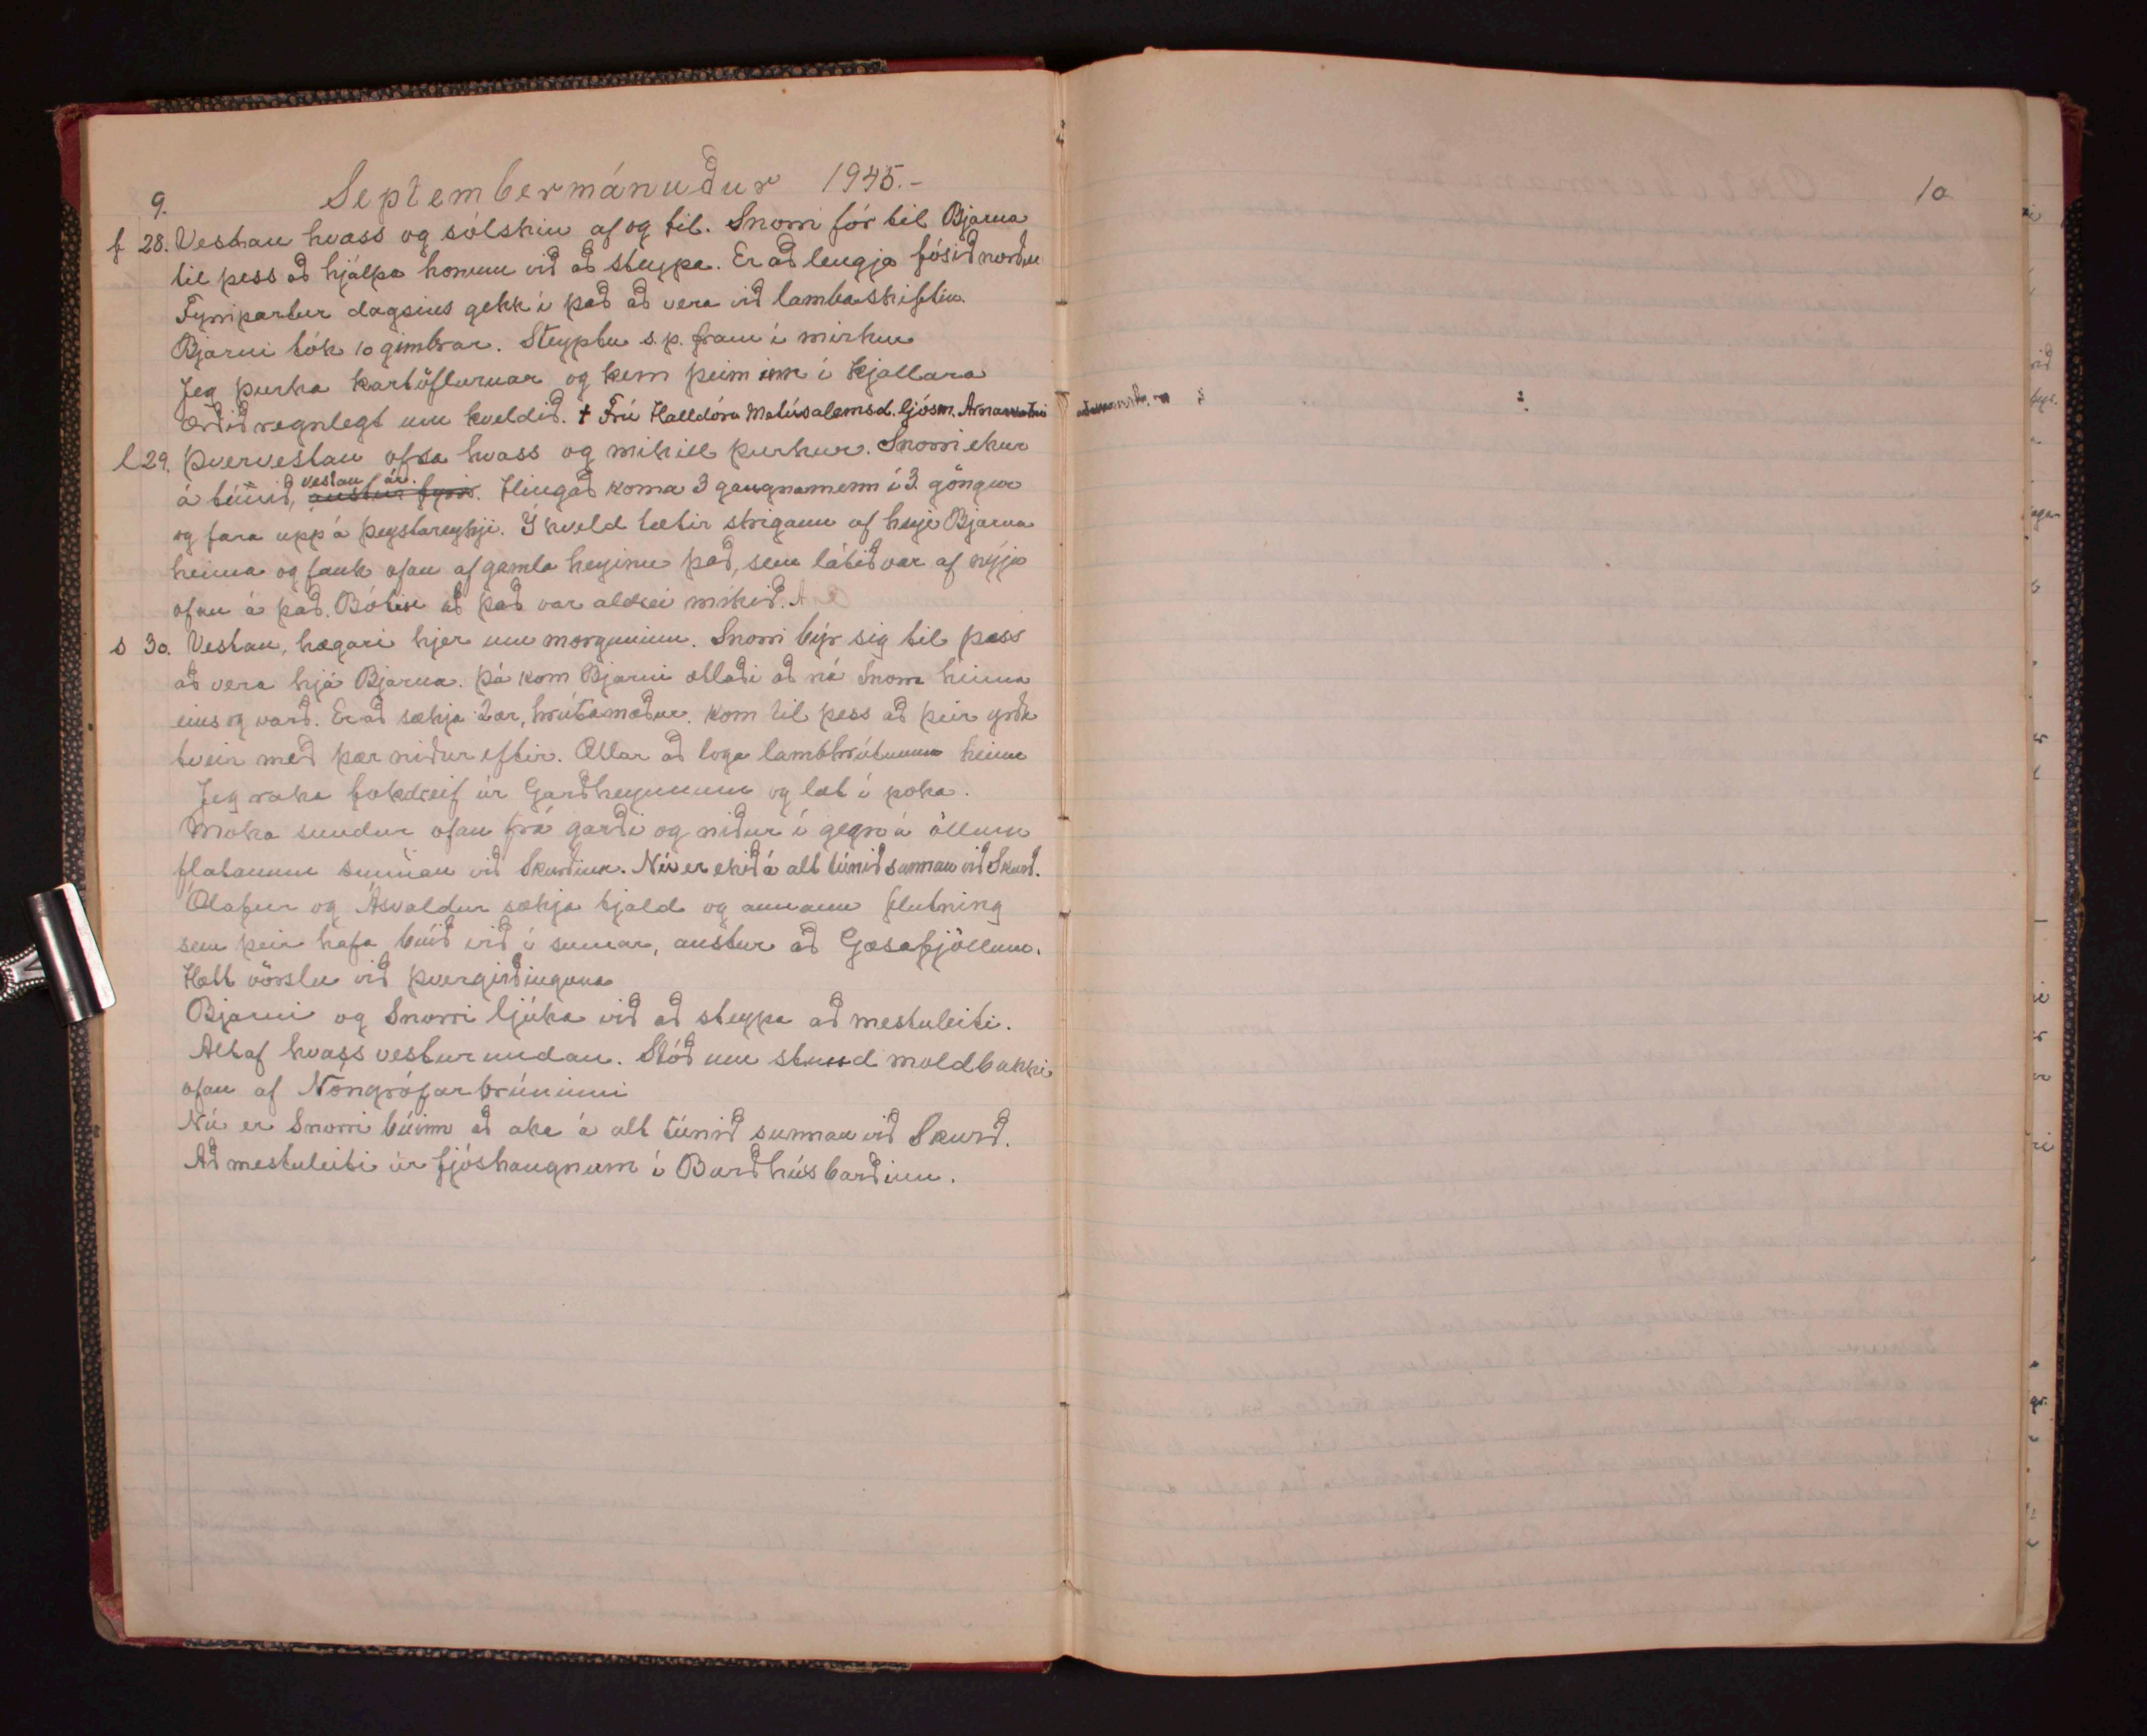 9. Septembermánuður 1945.-
f 28. Vestan hvass og sólskin af og til. Snorri fór til Bjarna
til þess að hjálpa honum við að steypa. Er að lengja fjósið norður
Fyrripartur dagsins gekk í það að vera við lambaskiftin.
Bjarni tók 10 gimbrar. Steyptu s.p. fram í mirkur
Jeg þurka kartöflurnar og kem þeim inn í kjallara
Orðið regnlegt um kveldið. † Frú Halldóra Matúsalemsd. ljósm. Árnavatni
l 29. Þvervestan ofsa hvass og mikill þurkur. Snorri ekur
vestan ár.
á túnið, austur fyrir. Hingað koma 3 gangnamenn í 3. göngur
og fara upp á Þeystareykji. Í kveld tætir strigann af heyji Bjarna
heima og fauk ofan af gamla heyinu það, sem látið var af nýju
ofan á það. Bótin að það var aldrei mikið.
s 30. Vestan, hægari hjer um morguninn. Snorri býr sig til þess
að vera hjá Bjarna. Þá kom Bjarni ætlaði að ná Snorra heima
eins og varð. Er að sækja 2 ær, hrútamæður. Kom til þess að þeir yrðu
tveir með þær niður eftir. Ætlar að loga lambhrútunum heima
Jeg raka fokdreif úr Garðheyjunum og læt í poka.
Moka sundur ofan frá garði og niður í gegn á öllum
flatanum sunnan við Skurðinn. Nú er ekið á alt túnið sunnan við Skurð.
Ólafur og Ásvaldur sækja tjald og annann flutning
sem þeir hafa búið við í sumar, austur að Gæsafjöllum.
Hætt vörslu við þvergirðinguna
Bjarni og Snorri ljúka við að steypa að mestuleiti.
Altaf hvass vestur undan. Stóð um stund moldbakki
ofan af Nóngrófarbrúninni
Nú er Snorri búinn að aka á alt túnið sunnan við Skurð.
Að mestuleiti úr fjóshaugnum í Barðhúsbarðinu.
10